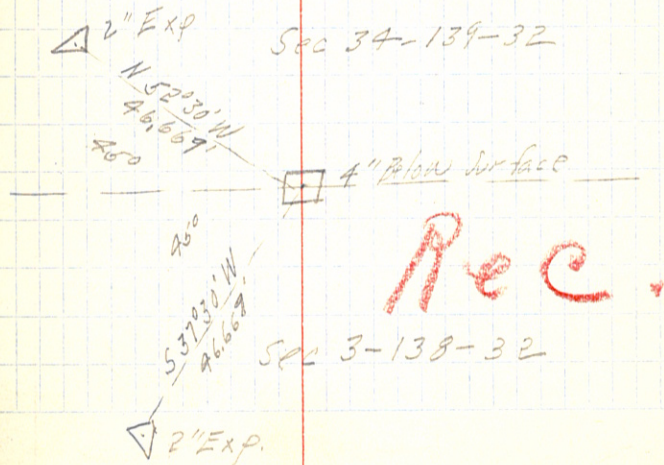 2" Exp
Sec 34-139-32
N 52°30' W
46.669'
450
4" Below Surface
450
Rec.
S 37°30' W
46.668'
Sec 3-138-32
2" Exp.